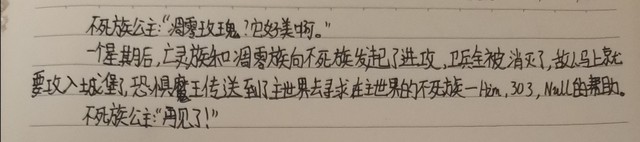 不死族公主:“凋零玫瑰?它好美啊。”
一个星期后,亡灵族和凋零族向不死族发起了进攻,卫兵全被消灭了,敌人马上就
要攻入城堡了,恐惧魔王传送到了主世界去寻求在主世界的不死族—Him,303,Null的帮助。
不死族公主:“再见了!”